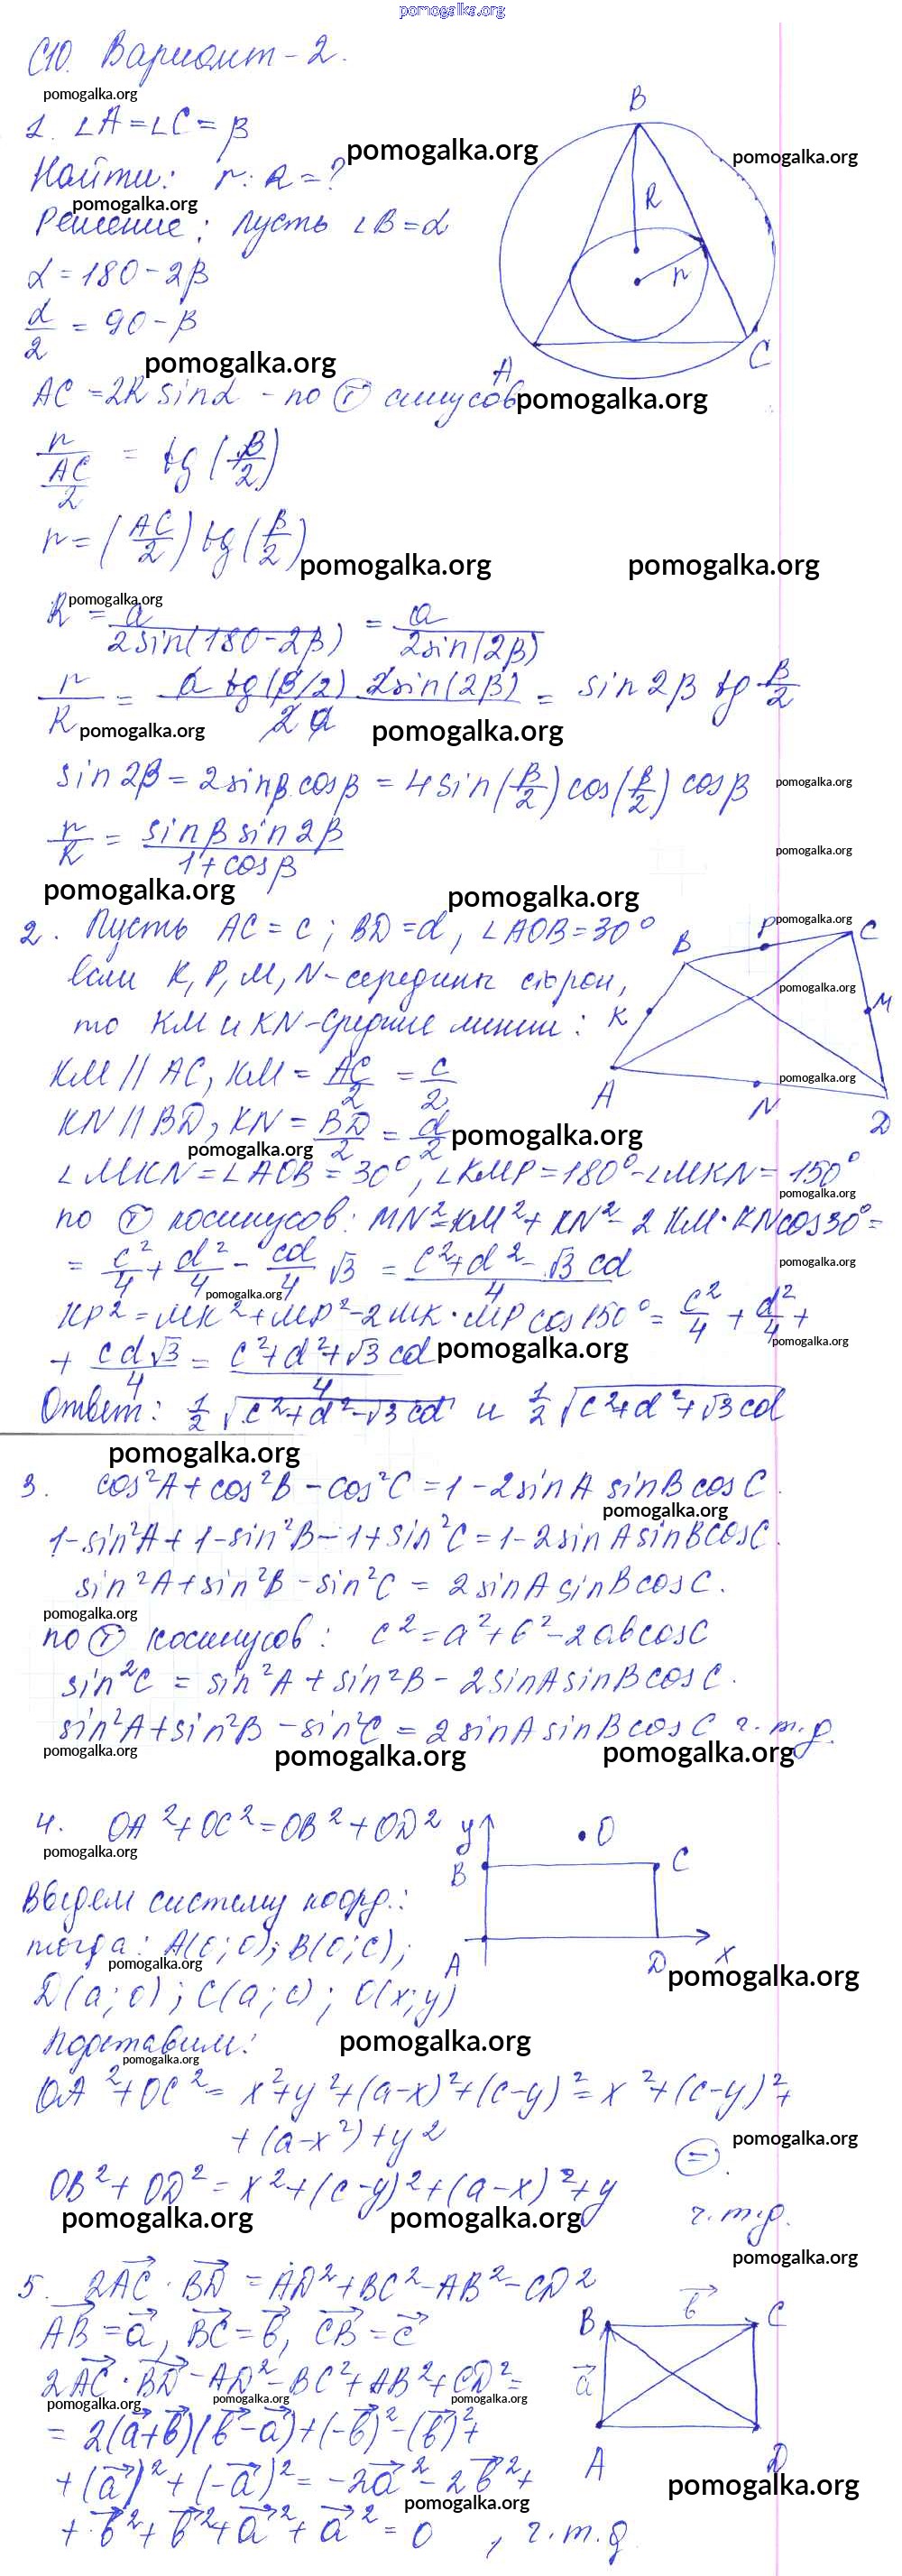 pomogalka.org
С10. Вариант-2.
pomogalka.org
1. ∠A=∠C=β
pomogalka.org
pomogalka.org
Найти: r:R=?
pomogalka.org
Решение: Пусть ∠B=α
α=180-2β
α/2 = 90-β
pomogalka.org
AC=2R sinα - по Т синусов
pomogalka.org
r/(AC/2) = tg(β/2)
r=(AC/2) tg(β/2)
pomogalka.org
pomogalka.org
pomogalka.org
R = a/(2sin(180-2β)) = a/(2sin(2β))
r/R = (a tg(β/2) 2sin(2β))/(2a) = sin2β tg β/2
pomogalka.org
pomogalka.org
sin2β=2sinβ.cosβ=4sin(β/2)cos(β/2)cosβ
pomogalka.org
r/R = (sinβ sin2β)/(1+cosβ)
pomogalka.org
pomogalka.org
pomogalka.org
B
R
r
A
C
2. Пусть AC=c; BD=d, ∠AOB=30°
pomogalka.org
если K, P, M, N-середины сторон,
pomogalka.org
то KM и KN-средние линии:
KM//AC, KM= AC/2 = c/2
pomogalka.org
KN//BD, KN= BD/2 = d/2
pomogalka.org
pomogalka.org
∠MKN=∠AOB=30°, ∠KMP=180°-∠MKN=150°
pomogalka.org
по Т косинусов: MN²=KM²+KN²-2KM·KNcos30°=
= c²/4 + d²/4 - cd/4 √3 = (c²+d²-√3 cd)/4
pomogalka.org
pomogalka.org
KP²=MK²+MP²-2MK·MP cos150°= c²/4 + d²/4 +
pomogalka.org
+ cd√3/4 = (c²+d²+√3 cd)/4
pomogalka.org
Ответ: 1/2 √(c²+d²-√3 cd) и 1/2 √(c²+d²+√3 cd)
B
P
C
K
M
A
N
D
pomogalka.org
3. cos²A+cos²B-cos²C=1-2sinA sinBcosC.
pomogalka.org
1-sin²A+1-sin²B-1+sin²C=1-2sinAsinBcosC.
sin²A+sin²B-sin²C = 2sinAsinBcosC.
pomogalka.org
по Т косинусов: c²=a²+b²-2abcosC
sin²C = sin²A+sin²B-2sinAsinBcosC.
sin²A+sin²B-sin²C=2sinAsinBcosC ч.т.д.
pomogalka.org
pomogalka.org
pomogalka.org
4. OA²+OC²=OB²+OD²
pomogalka.org
y
O
B
C
A
D
x
Введем систему коорд.:
тогда: A(0;0); B(0;c);
pomogalka.org
pomogalka.org
D(a;0); C(a;c); O(x;y)
Подставим:
pomogalka.org
pomogalka.org
OA²+OC²=x²+y²+(a-x)²+(c-y)²=x²+(c-y)²+
+(a-x²)+y2
pomogalka.org
OB²+OD²=x²+(c-y)²+(a-x)²+y
=.
pomogalka.org
pomogalka.org
ч.т.д.
pomogalka.org
5. 2AC·BD=AD²+BC²-AB²-CD²
AB=a, BC=b, CB=c
2AC·BD-AD²-BC²+AB²+CD²=
pomogalka.org
pomogalka.org
pomogalka.org
= 2(a+b)(b-a)+(-b)²-(b)²+
+(a)²+(-a)²=-2a²-2b²+
pomogalka.org
pomogalka.org
+b²+b²+a²+a²=0, ч.т.д
b
B
C
a
A
D